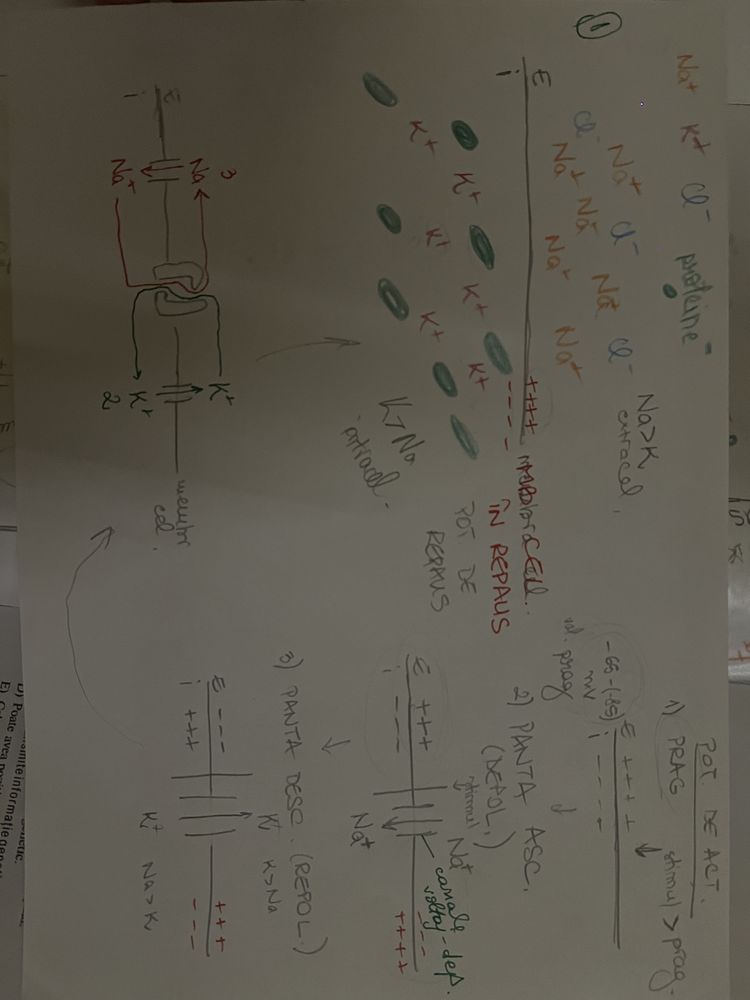 ①
Na⁺ K⁺ Cl⁻ proteine⁻
Na⁺ Cl⁻ Na⁺ Cl⁻
Cl⁻ Na⁺ Na⁺ Na⁺ Na⁺
Na>K
extracel.
E
i
++++
----
CELL.
ÎN REPAUS
POT DE
REPAUS
K⁺ K⁺ K⁺ K⁺ K⁺ K⁺
K>Na
intracel.
E
i
3
Na⁺
Na⁺
K⁺
K⁺
2
membr
cel.
POT DE ACT.
1) PRAG
stimul > prag
-65-(-85)
mV
val. prag
E ++++
i ----
2) PANTA ASC.
(DEPOL.)
stimul
Na⁺
E +++
i ---
Na⁺
canale
voltaj-dep.
---
++++
3) PANTA DESC. (REPOL.)
E ---
i +++
K⁺ K>Na
K⁺ Na>K
+++
---
D) Poate avea
E)